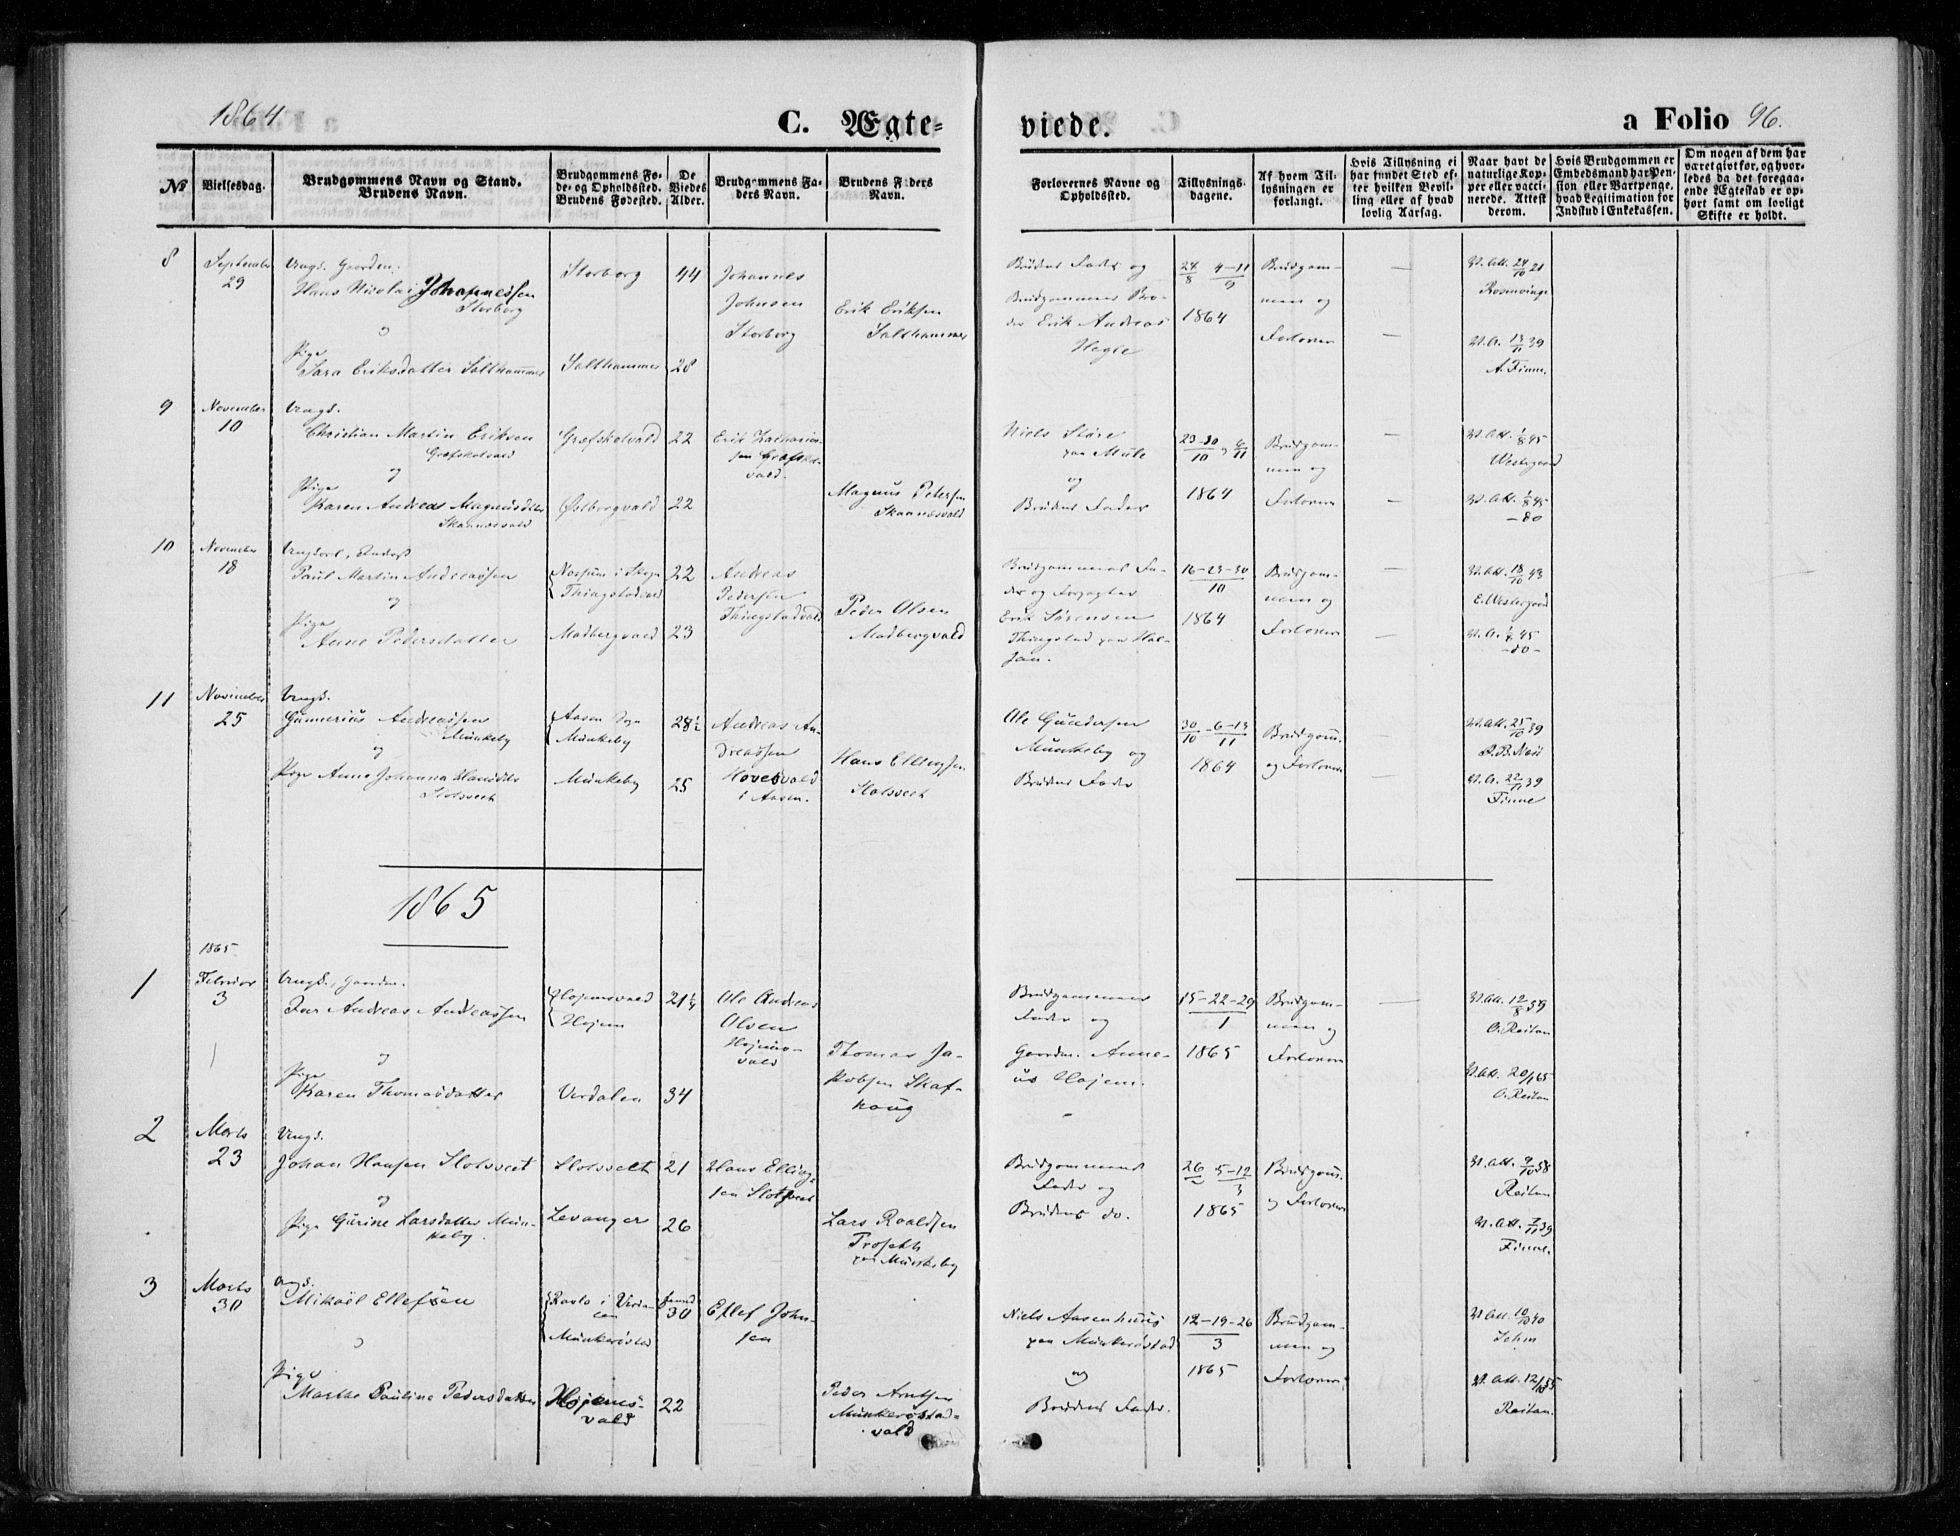 1864
C. Ægte-
viede.
a Folio 96.
No
Vielsesdag.
Brudgommens Navn og Stand.
Brudens Navn.
Brudgommens Fø-
de- og Opholdssted.
Brudens Fødested.
De
Viedes
Alder.
Brudgommens Fa-
ders Navn.
Brudens Faders
Navn.
Forlovernes Navne og
Opholdssted.
Tillysnings-
dagene.
Af hvem Til-
lysningen er
forlangt.
Hvis Tillysning ei
har fundet Sted ef-
ter hvilken Bevil-
ling eller af hvad
lovlig Aarsag.
Naar havt de
naturlige Kop-
per eller vacci-
nerede. Attest
derom.
Hvis Brudgommen er
Embedsmand har Pen-
sion eller Vartpenge,
hvad Legitimation for
Indskud i Enkekassen.
Om nogen af dem har
været givt før, og hvor-
ledes da det foregaa-
ende Ægteskab er op-
hørt samt om lovligt
Skifte er holdt.
8
September
29
Ungk. Gaarden.
Hans Nicolai Johannessen
Storborg
og
Pige
Sara Eriksdatter Salthammer
Storborg
Salthammer
44
28
Johannes
Johnsen
Storborg
Erik Eriksen
Salthammer
Brudens Fader og
Brudgommens Bro-
der Erik Andreas
Hegle
24/8 4-11/9
1864
Brudgom-
men og
Forlover
V. Att. 24/10 21
Rosenvinge
V. A. 13/11 39
A. Finne.
9
November
10
Ungk.
Christian Martin Eriksen
Græfskotvald
og
Pige
Karen Andrea Magnusdtter
Skaanesvald
Græfskotvald
Østborgvald
22
22
Erik Zacharias-
sen Græfskot-
vald.
Magnus Petersen
Skaanesvald
Niels Støre
paa Mule
og
Brudens Fader
23-30/10, 6/11
1864
Brudgom-
men og
Forlover
V. Att. 1/8 45
Westergaard
V. Att. 1/8 45
- do
10
November
18
Paul Martin Andreassen
og
Pige
Anne Pedersdatter
Thingstadvald
Madbergvald
22
23
Andreas
Pedersen
Thingstadvald
Peder Olsen
Madbergvald
Brudgommens Fa-
der og
Erik Sørensen
Thingstad paa Hal-
san.
16-23-30
10
1864
Brudgom-
men og
Forlover
V. Att. 18/10 43
E. Westergaard
-do-
11
November
25
Ungk.
Gunnerius Andreassen
Munkeby
og
Pige Anne Johanna Hansdtr
Slotsveet
Aasen Sogn
Munkeby
Munkeby
28½
25
Andreas An-
dreassen
Hovesvald
i Aasen.
Hans Ellingsen
Slotsveet
Ole Gundersen
Munkeby og
Brudens Fader
30/10 - 6-13/11
1864
Brudgom.
og Forlover
V. Att. 25/10 39
V. A. 22/11 39
Finne
1865
1865
1
Februar
3
Ungk., Gaardm.
Ivar Andreas Andreassen
og
Pige
Karen Thomasdatter
Hojemsvald
Hojem
Verdalen
21¼
34
Ole Andreas
Olsen
Hojems-
vald
Thomas Ja-
kobsen Skaf-
houg
Brudgommens
Fader og
Gaardm. Anne-
us Hojem.
15-22-29
1
1865
Brudgom-
men og
Forlover
V. Att. 12/8 59
O. Reitan
V. Att. 20/1 65
O. Reitan
2
Marts
23
Ungk.
Johan Hansen Slotsveet
og
Pige Gurine Larsdatter Mun-
keby.
Slotsvelt
Levanger
21
26
Hans Elling-
sen Slotsveet
Lars Roaldsen
Troseth
paa Munkeby
Brudgommens
Fader og
Brudens do.
26/2 5-12/3
1865
Brudgom.
og Forlover
V. Att. 9/10 58
Reitan
V. Att. 7/11 39
Finne.
3
Marts
30
Ungk.
Mikael Ellefsen
og
Pige
Marthe Pauline Pedersdatter
Munkerøstad
Hojems-
vald
30
22
Ellef John-
sen
Peder Arntsen
Munkerøstad-
vald
Niels Aasenhuus
paa Munkerøstad
og
Brudens Fader.
12-19-26
3
1865
Brudgom-
men og
Forlover
V. Att. 10/10 40
V. Att. 12/10 55
Reitan.